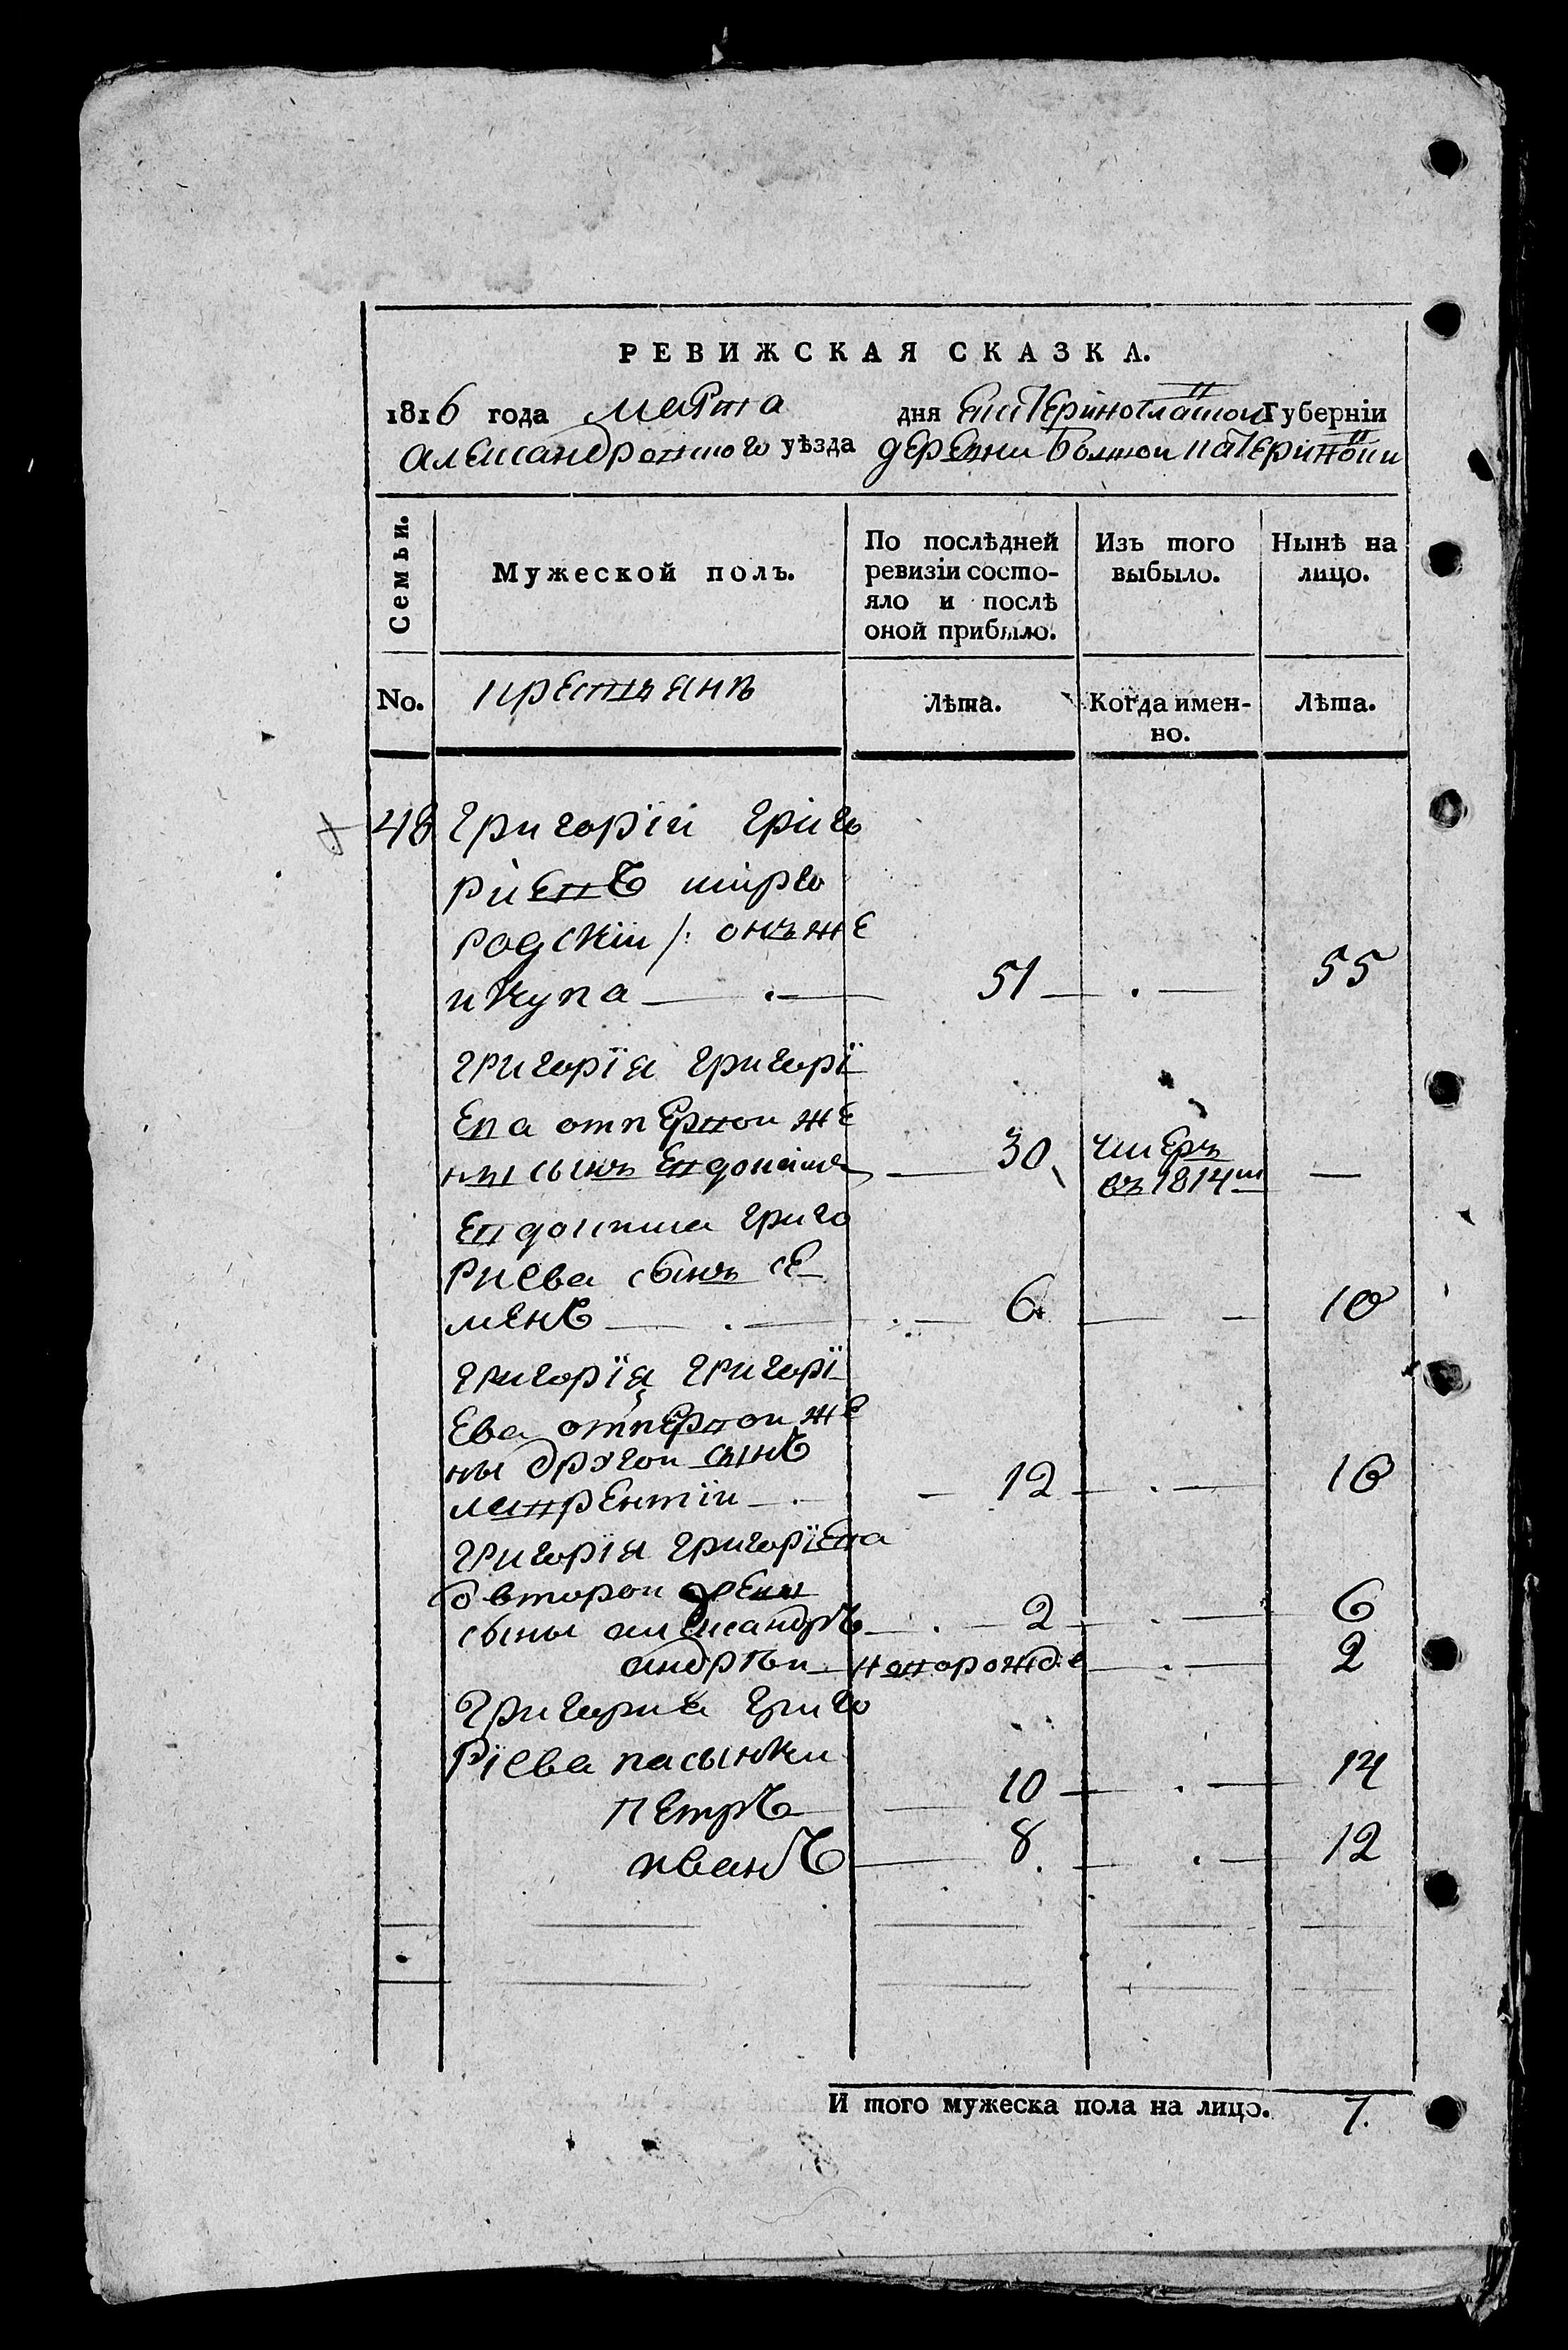 РЕВИЖСКАЯ СКАЗКА.
1816 года марта дня Екатеринославской Губерніи
Александровского уѣзда деревни Екатериновки
Семьи. Мужеской полъ. По послѣдней ревизіи состо- яло и послѣ оной прибыло. Изъ того выбыло. Нынѣ на лицо.
No. крестьянъ Лѣта. Когда имен- но. Лѣта.
48 Григорій Григо
ріевъ мирго
родскій /: онъже
51 55
Григорія Григорі
ева отпервой же
ны сынъ Евдокимъ 30 умеръ въ 1814м —
Евдокима Григо
риева сынъ Се
менъ 6 10
Григорія Григорі
ева отпервой же
ны другой сынъ
лаврентій 12 16
Григорія Григоріева
овторой жены
сыны александръ 2 6
андрѣй новорожде 2
Григория Григо
ріева пасынки
петръ 10 14
иванъ 8 12
И того мужеска пола на лицо. 7.